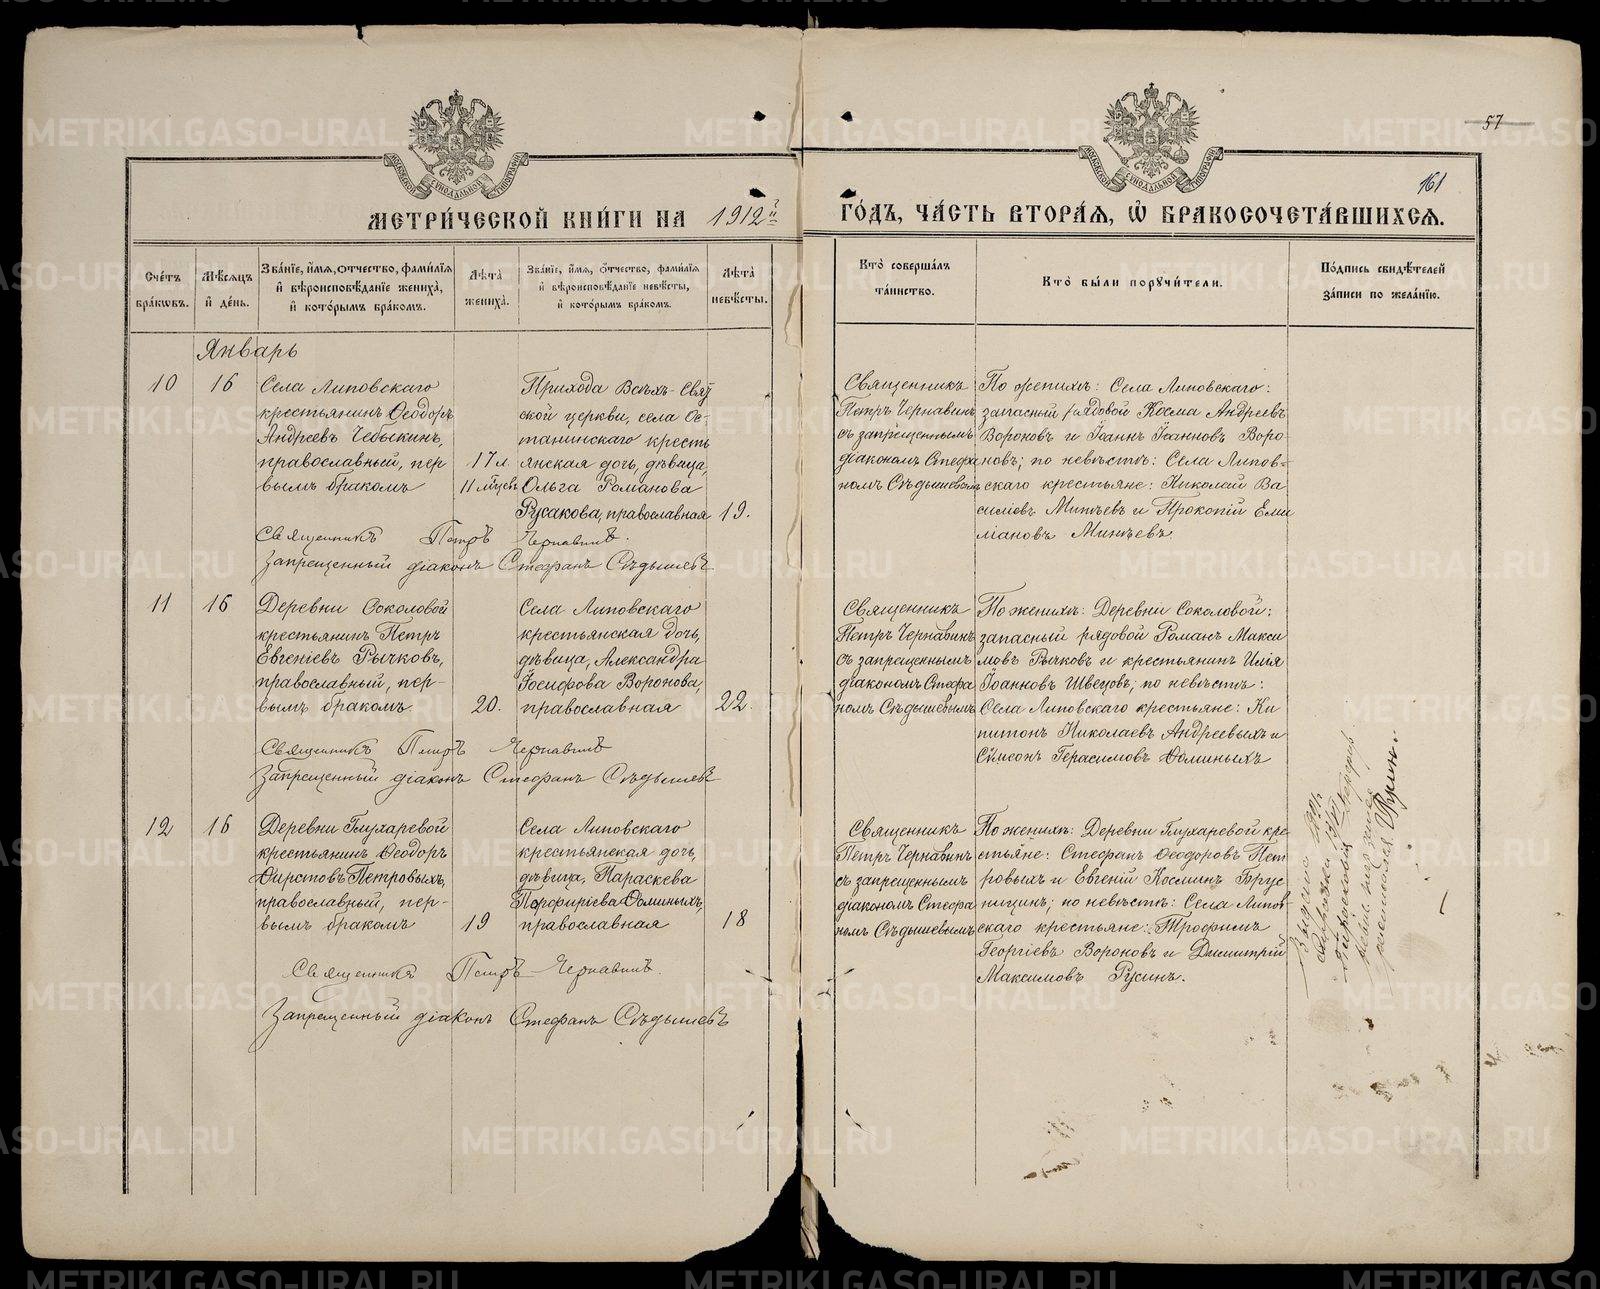 57
161
МЕТРИ́ЧЕСКОЙ КНИ́ГИ НА 1912й
ГО́ДЪ, ЧА́СТЬ ВТОРА́Я, Ѡ҆ БРАКОСОЧЕТА́ВШИХСЯ.
Сче́тъ
бра́кѡвъ.
Мѣ́сяцъ
и҆ де́нь.
Зва́нїе, и҆́мя, ѻ҆́тчество, фами́лїя
и҆ вѣроисповѣ́данїе жениха̀,
и҆ кото́рымъ бра́комъ.
Лѣ́та
жениха̀.
Зва́нїе, и҆́мя, ѻ҆́тчество, фами́лїя
и҆ вѣроисповѣ́данїе невѣ́сты,
и҆ кото́рымъ бра́комъ.
Лѣ́та
невѣ́сты.
Кто̀ соверша́лъ
та́инство.
Кто̀ бы́ли порꙋчи́тели.
По́дпись свидѣ́телей
за́писи по жела́нїю.
Январь
10
16
Села Липовскаго
крестьянинъ Ѳеодоръ
Андреевъ Чебыкинъ,
православный, пер
вымъ бракомъ
17 л.
11 мѣсцевъ
Прихода Всѣхъ-Свят
ской церкви, села Ос-
танинскаго кресть
янская дочь, дѣвица,
Ольга Романова
Русакова, православная
19.
Священникъ
Петръ Чернавинъ
съ запрещеннымъ
діакономъ Стефа
номъ Сѣдышевымъ
По женихѣ: Села Липовскаго:
запасный рядовой Косма Андреевъ
Вороновъ и Іоаннъ Іоанновъ Воро-
новъ; по невѣстѣ: Села Липов-
скаго крестьяне: Николай Ва
силіовъ Минѣевъ и Прокопій Еми
ліановъ Минѣевъ.
Священникъ Петръ Чернавинъ.
Запрещенный діаконъ Стефанъ Сѣдышевъ
11
16
Деревни Соколовой
крестьянинъ Петръ
Евгеніевъ Рычковъ,
православный, пер-
вымъ бракомъ
20.
Села Липовскаго
крестьянская дочь,
дѣвица, Александра
Іосифова Воронова,
православная
22.
Священникъ
Петръ Чернавинъ
съ запрещеннымъ
діакономъ Стефа
номъ Сѣдышевымъ
По женихѣ: Деревни Соколовой:
запасный рядовой Романъ Макси
мовъ Рычковъ и крестьянинъ Илія
Іоанновъ Швецовъ; по невѣстѣ:
Села Липовскаго крестьяне: Ки
питонъ Николаевъ Андреевыхъ и
Сѵмеонъ Герасимовъ Ѳоминыхъ
Священникъ Петръ Чернавинъ
Запрещенный діаконъ Стефанъ Сѣдышевъ
12
16
Деревни Глухаревой
крестьянинъ Ѳеодоръ
Ѳирсовъ Петровыхъ,
православный, пер-
вымъ бракомъ
19
Села Липовскаго
крестьянская дочь,
дѣвица, Параскева
Порфиріева Ѳоминыхъ,
православная
18
Священникъ
Петръ Чернавинъ
съ запрещеннымъ
діакономъ Стефа
номъ Сѣдышевымъ
По женихѣ: Деревни Глухаревой кре
стьяне: Стефанъ Ѳеодоровъ Пет
ровыхъ и Евгеній Косминъ Брус
ницинъ; по невѣстѣ: Села Липов-
скаго крестьяне: Трофимъ
Георгіевъ Вороновъ и Димитрій
Максимовъ Русинъ.
Священникъ Петръ Чернавинъ.
Запрещенный діаконъ Стефанъ Сѣдышевъ
METRIKI.GASO-URAL.RU